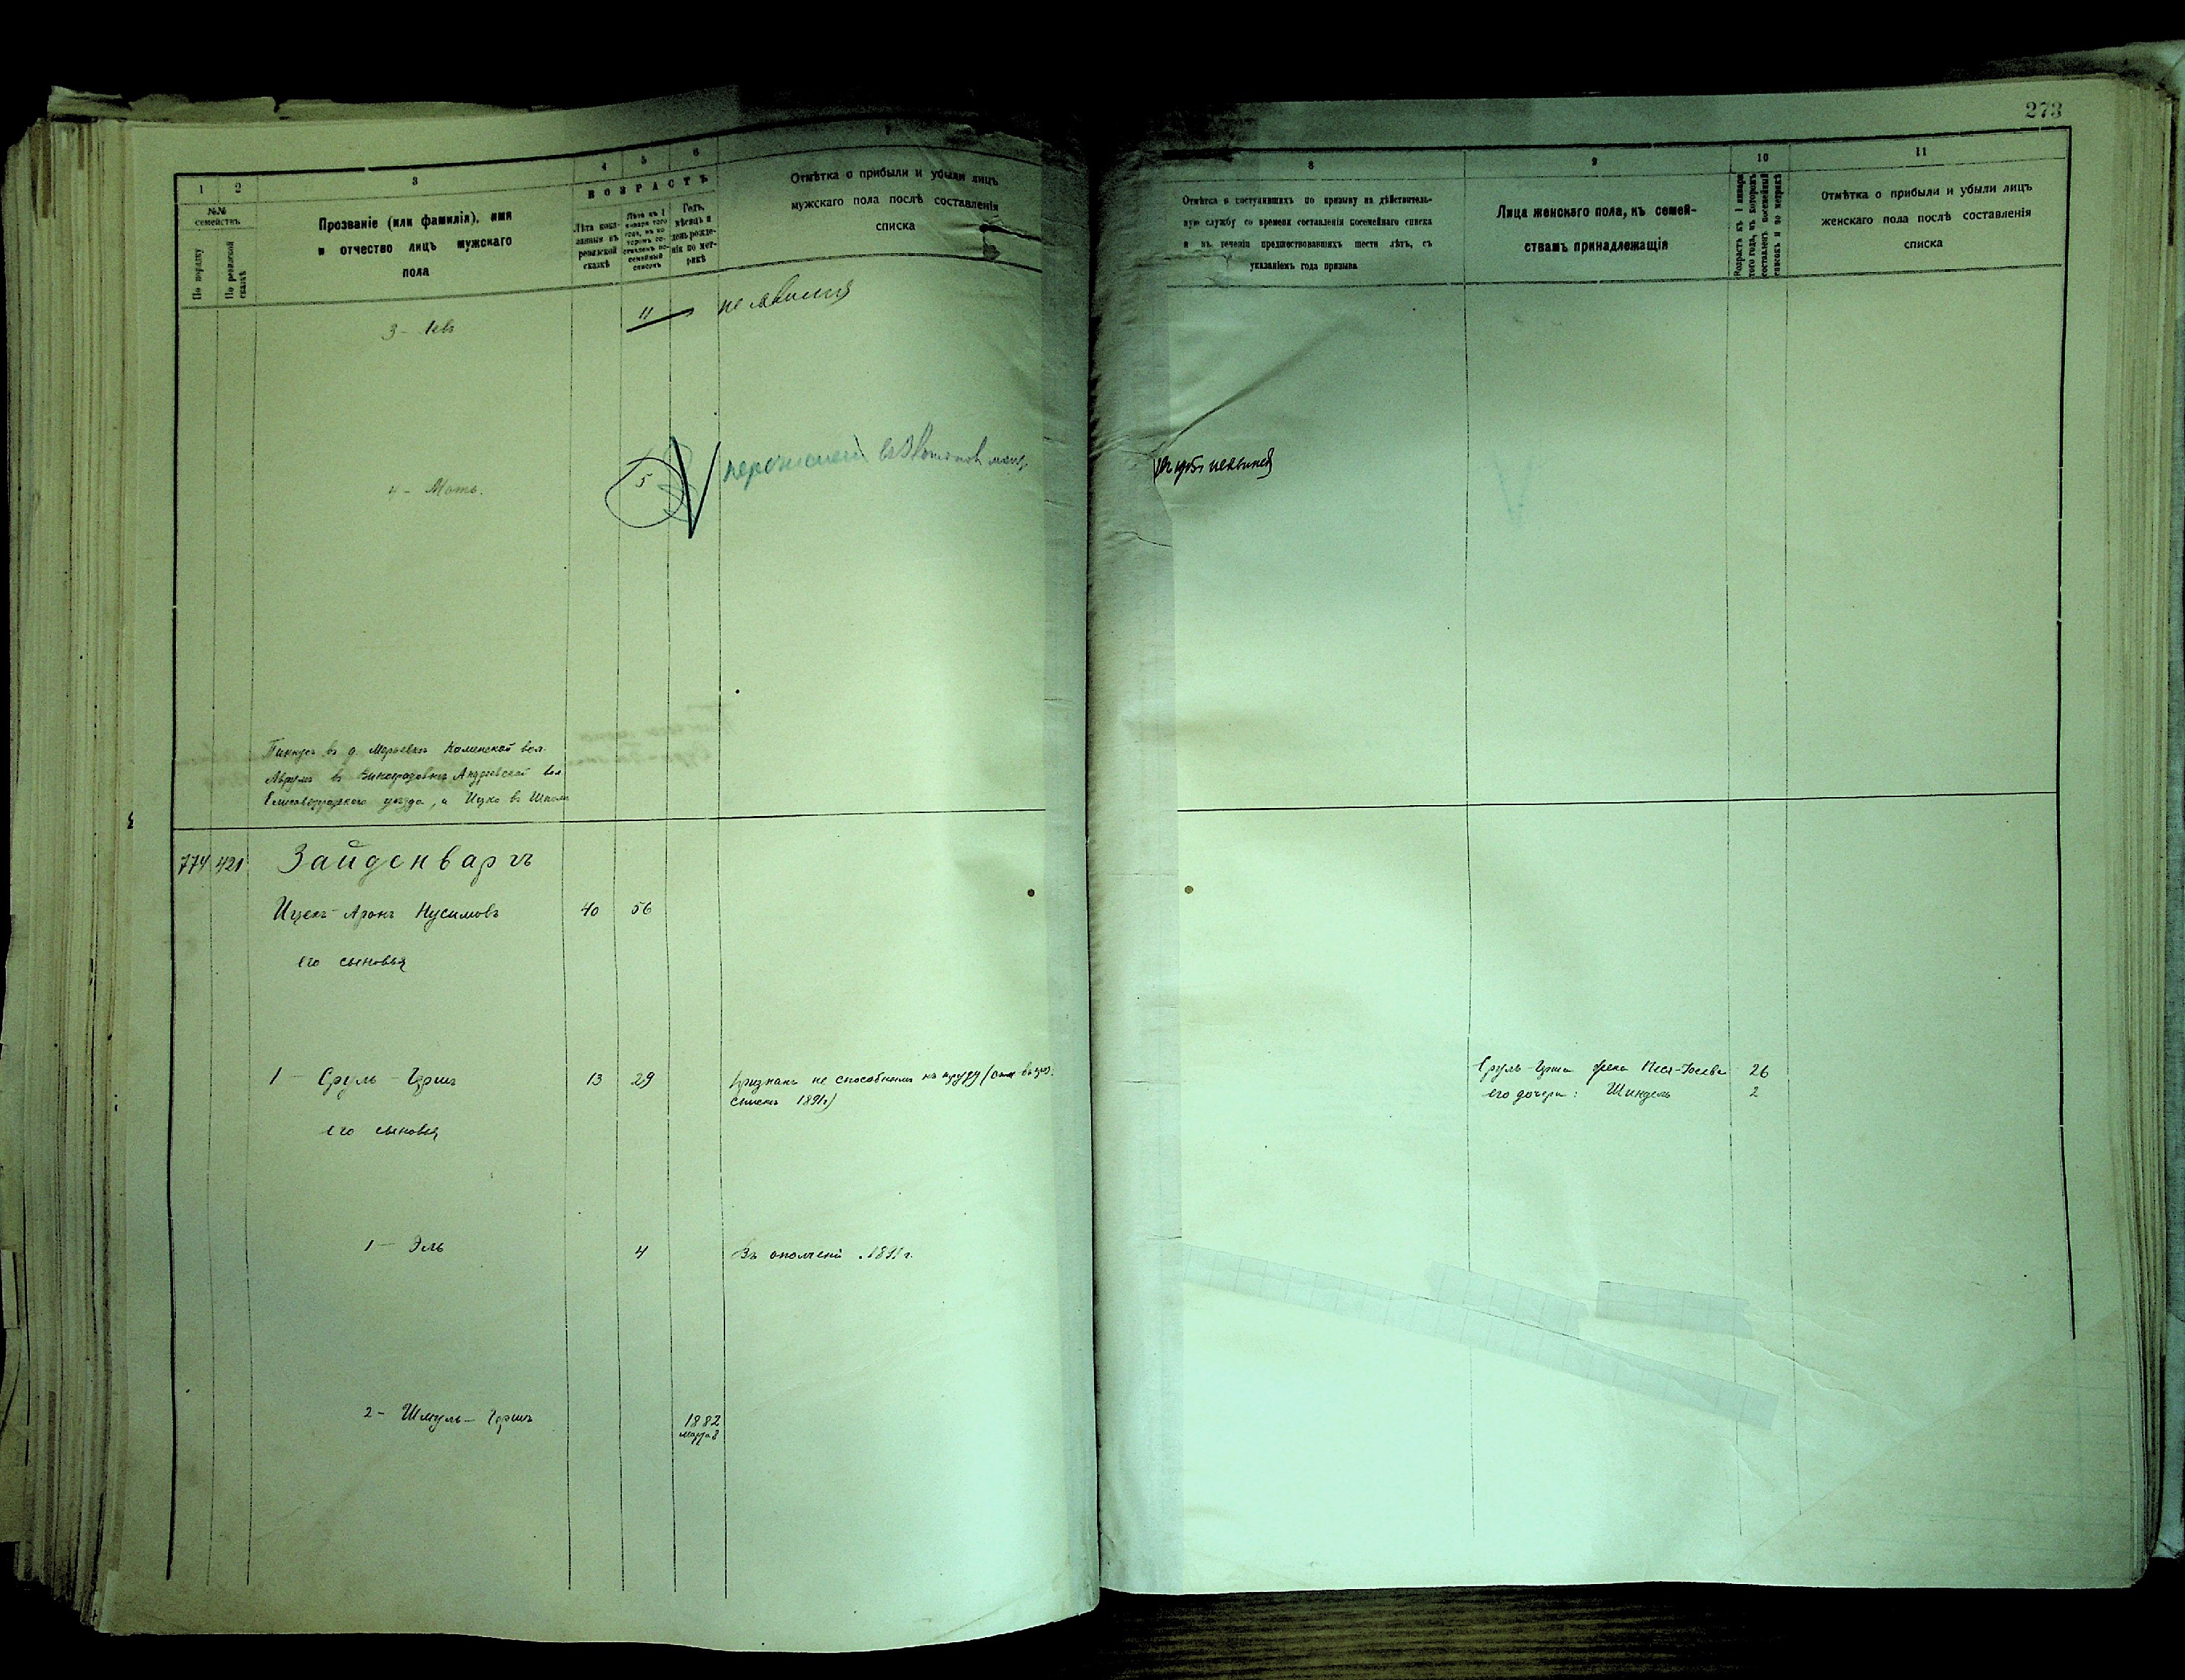 273
1 2 3 4 5 6 7
№№ семействъ.
По порядку
По ревизской сказкѣ
Прозваніе (или фамилія), имя
и отчество лицъ мужскаго
пола
ВОЗРАСТЪ
Лѣта пока-
занныя въ
ревизской
сказкѣ
Лѣта къ 1
января того
года, въ ко-
торомъ со-
ставленъ по-
семейный
списокъ
Годъ,
мѣсяцъ и
день рожде-
нія по мет-
рикѣ
Отмѣтка о прибыли и убыли лицъ
мужскаго пола послѣ составленія
списка
8 9 10 11
Отмѣтка о поступавшихъ по призыву на дѣйствитель-
ную службу со времени составленія посемейнаго списка
и въ теченіи предшествовавшихъ шести лѣтъ, съ
указаніемъ года призыва
Лица женскаго пола, къ семей-
ствамъ принадлежащія
Возрастъ къ 1 января
того года, въ которомъ
составленъ посемейный
списокъ и по метрикѣ
Отмѣтка о прибыли и убыли лицъ
женскаго пола послѣ составленія
списка
3 - Левъ 11 не явился
4 - Моть. 5
Пинкусъ въ д. Каменской вол.
Аврумъ въ Андреевской вол
Елисаветградскаго уѣзда, а Ицко въ Шполѣ
774 421 Зайденваргъ
Ицекъ-Аронъ Нусимовъ 40 56
его сыновья
1 - Сруль-Гершъ 13 29 Признанъ не способнымъ къ труду
списокъ 1891г)
Сруль-Герша жена 26
его дочери: Шиндель 2
его сыновья
1 - Эль 4 Въ ополченіи
2 - Шмуль-Гершъ 1882
марта 8